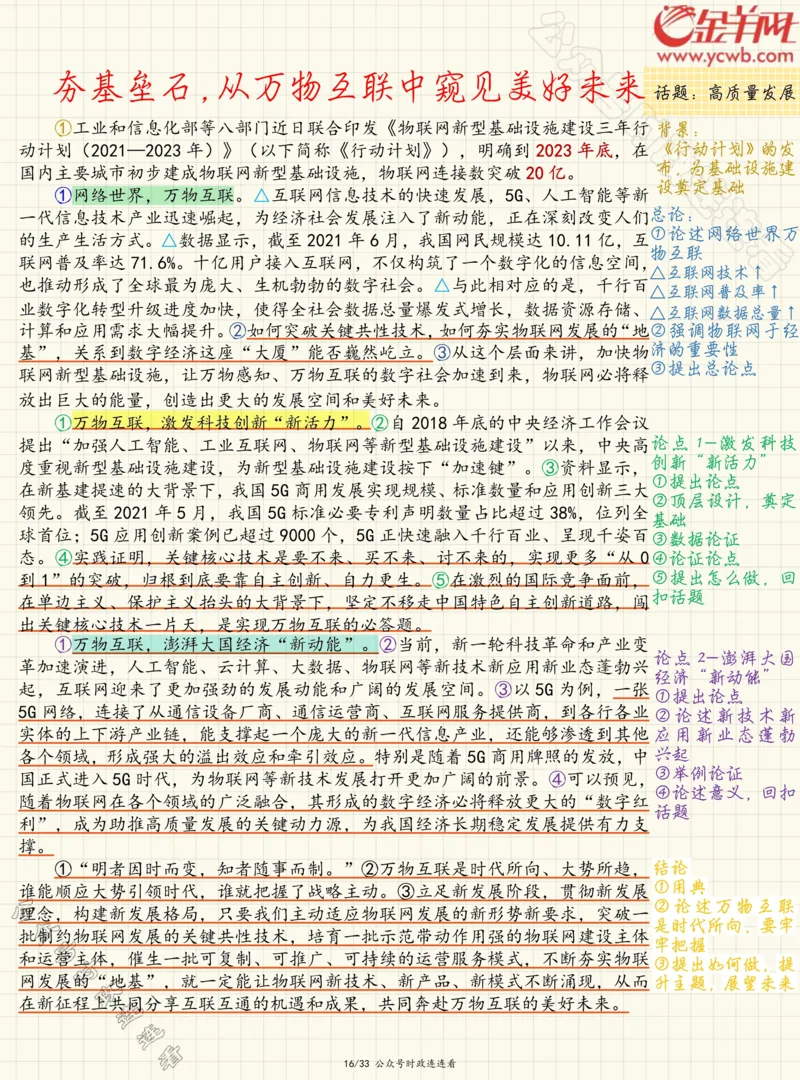 金羊网
www.ycwb.com
夯基垒石,从万物互联中窥见美好未来
话题：高质量发展
①工业和信息化部等八部门近日联合印发《物联网新型基础设施建设三年行
动计划（2021—2023 年）》（以下简称《行动计划》），明确到 2023 年底，在
国内主要城市初步建成物联网新型基础设施，物联网连接数突破 20 亿。
①网络世界，万物互联。△互联网信息技术的快速发展，5G、人工智能等新
一代信息技术产业迅速崛起，为经济社会发展注入了新动能，正在深刻改变人们
的生产生活方式。△数据显示，截至 2021 年 6 月，我国网民规模达 10.11 亿，互
联网普及率达 71.6%。十亿用户接入互联网，不仅构筑了一个数字化的信息空间，
也推动形成了全球最为庞大、生机勃勃的数字社会。△与此相对应的是，千行百
业数字化转型升级进度加快，使得全社会数据总量爆发式增长，数据资源存储、
计算和应用需求大幅提升。②如何突破关键共性技术，如何夯实物联网发展的“地
基”，关系到数字经济这座“大厦”能否巍然屹立。③从这个层面来讲，加快物
联网新型基础设施，让万物感知、万物互联的数字社会加速到来，物联网必将释
放出巨大的能量，创造出更大的发展空间和美好未来。
①万物互联，激发科技创新“新活力”。②自 2018 年底的中央经济工作会议
提出“加强人工智能、工业互联网、物联网等新型基础设施建设”以来，中央高
度重视新型基础设施建设，为新型基础设施建设按下“加速键”。③资料显示，
在新基建提速的大背景下，我国 5G 商用发展实现规模、标准数量和应用创新三大
领先。截至 2021 年 5 月，我国 5G 标准必要专利声明数量占比超过 38%，位列全
球首位；5G 应用创新案例已超过 9000 个，5G 正快速融入千行百业、呈现千姿百
态。④实践证明，关键核心技术是要不来、买不来、讨不来的，实现更多“从 0
到 1”的突破，归根到底要靠自主创新、自力更生。⑤在激烈的国际竞争面前，
在单边主义、保护主义抬头的大背景下，坚定不移走中国特色自主创新道路，闯
出关键核心技术一片天，是实现万物互联的必答题。
①万物互联，澎湃大国经济“新动能”。②当前，新一轮科技革命和产业变
革加速演进，人工智能、云计算、大数据、物联网等新技术新应用新业态蓬勃兴
起，互联网迎来了更加强劲的发展动能和广阔的发展空间。③以 5G 为例，一张
5G 网络，连接了从通信设备厂商、通信运营商、互联网服务提供商，到各行各业
实体的上下游产业链，能支撑起一个庞大的新一代信息产业，还能够渗透到其他
各个领域，形成强大的溢出效应和牵引效应。特别是随着 5G 商用牌照的发放，中
国正式进入 5G 时代，为物联网等新技术发展打开更加广阔的前景。④可以预见，
随着物联网在各个领域的广泛融合，其形成的数字经济必将释放更大的“数字红
利”，成为助推高质量发展的关键动力源，为我国经济长期稳定发展提供有力支
撑。
①“明者因时而变，知者随事而制。”②万物互联是时代所向、大势所趋，
谁能顺应大势引领时代，谁就把握了战略主动。③立足新发展阶段，贯彻新发展
理念，构建新发展格局，只要我们主动适应物联网发展的新形势新要求，突破一
批制约物联网发展的关键共性技术，培育一批示范带动作用强的物联网建设主体
和运营主体，催生一批可复制、可推广、可持续的运营服务模式，不断夯实物联
网发展的“地基”，就一定能让物联网新技术、新产品、新模式不断涌现，从而
在新征程上共同分享互联互通的机遇和成果，共同奔赴万物互联的美好未来。
背景：
《行动计划》的发
布，为基础设施建
设奠定基础
总论：
①论述网络世界万
物互联
△互联网技术↑
△互联网普及率↑
△互联网数据总量↑
②强调物联网于经
济的重要性
③提出总论点
论点 1—激发科技
创新“新活力”
①提出论点
②顶层设计，奠定
基础
③数据论证
④论证论点
⑤提出怎么做，回
扣话题
论点 2—澎湃大国
经济“新动能”
①提出论点
②论述新技术新
应用新业态蓬勃
兴起
③举例论证
④论述意义，回扣
话题
结论
①用典
②论述万物互联
是时代所向，要牢
牢把握
③提出如何做，提
升主题，展望未来
16/33 公众号时政连连看